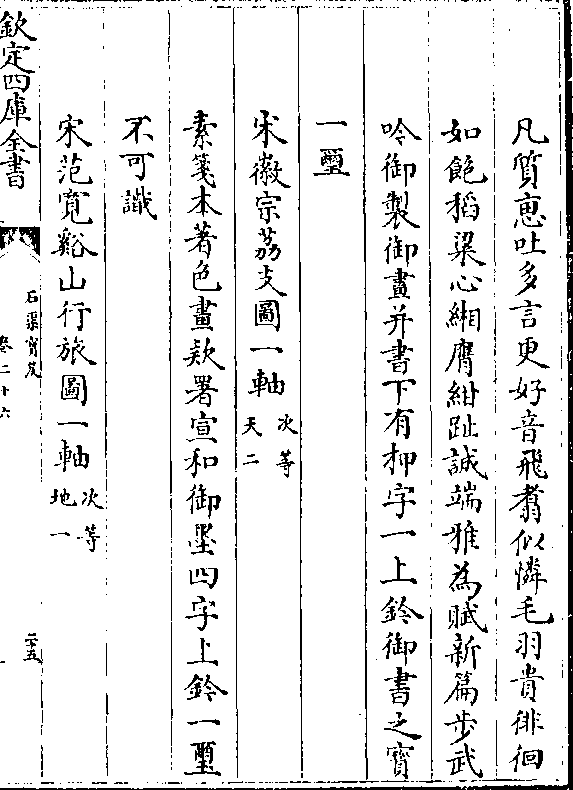 凡質恵吐多言更好音飛翥似憐毛羽貴徘徊
如飽稻粱心緗膺紺趾誠端雅為賦新篇步武
吟御製御畫并書下有押字一上鈐御書之寳
一璽
宋徽宗荔支圖一軸次等天二
素箋本著色畫欵署宣和御墨四字上鈐一璽
不可識
宋范寛谿山行旅圖一軸次等地一
欽定四庫全書
石渠寳笈
卷二十六
二十五